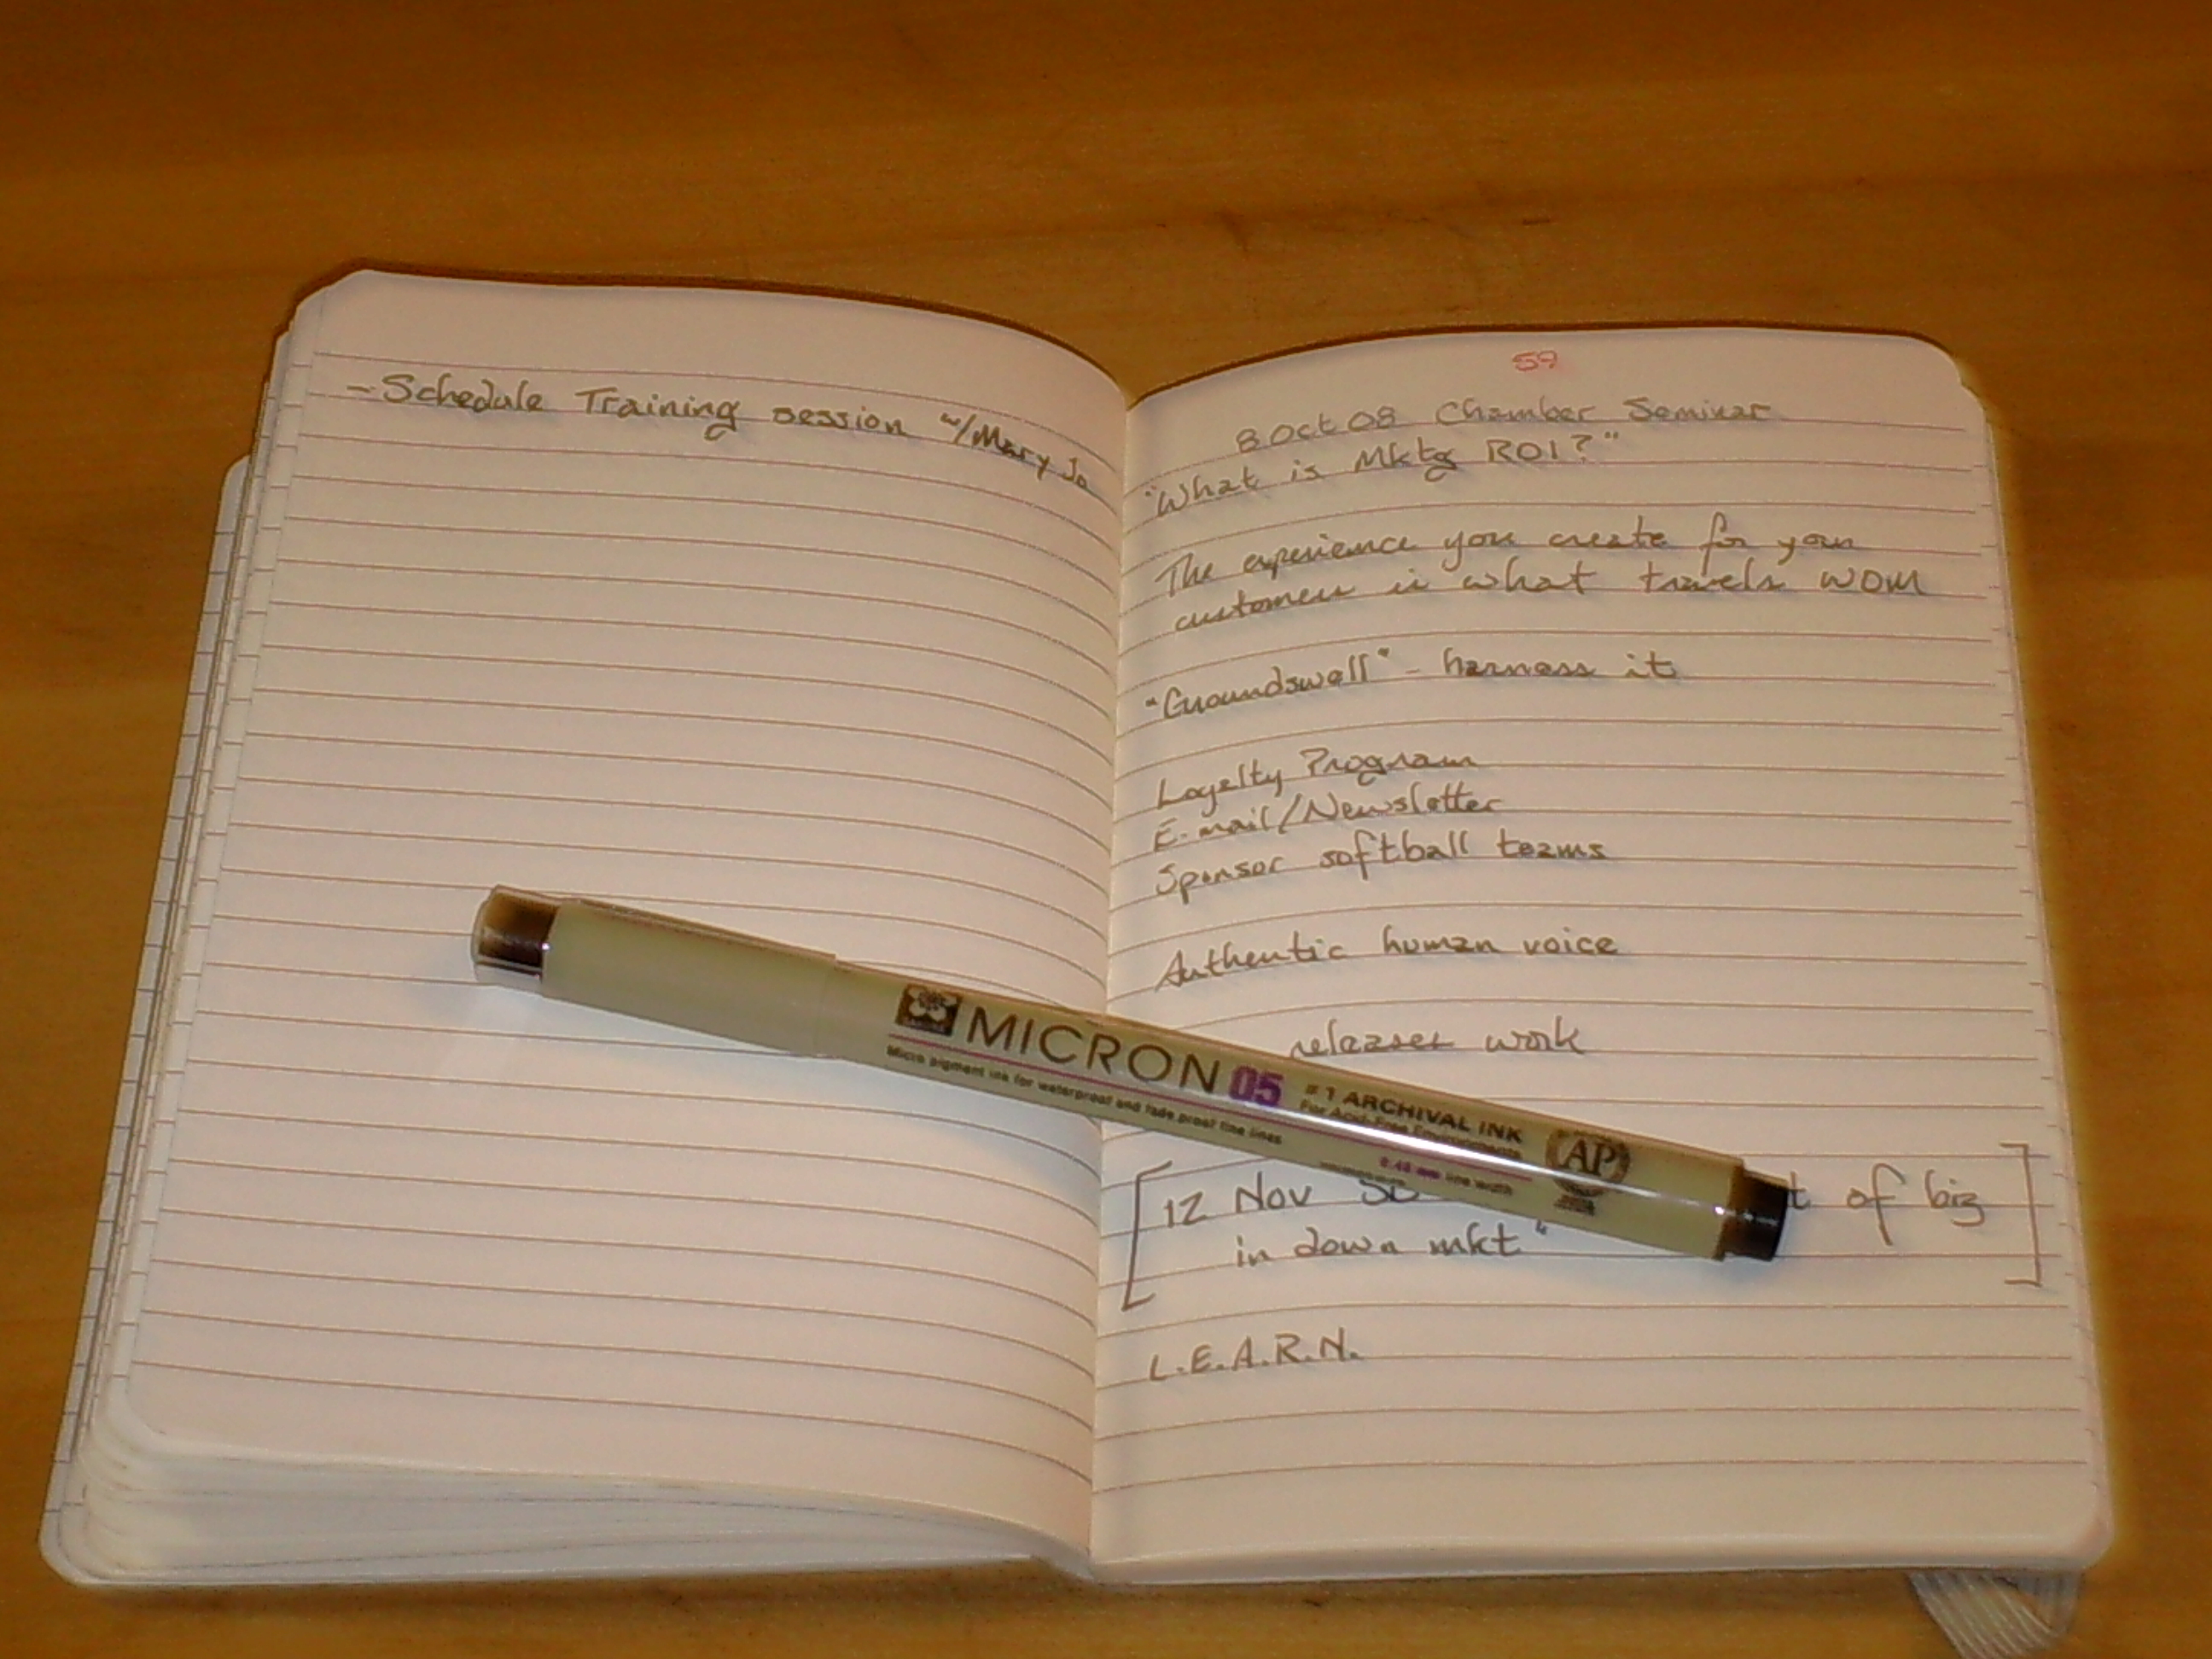 - Schedule Training session w/Mary Jo
59
8 Oct 08 Chamber Seminar
"What is Mktg ROI?"
The experience you create for your
customers is what travels WOM
"Groundswell" - harness it
Loyalty Program
E-mail/Newsletter
Sponsor softball teams
Authentic human voice
releases work
[12 Nov of biz
in down mkt"]
L.E.A.R.N.
MICRON 05
Micro pigment ink for waterproof and fade proof fine lines
#1 ARCHIVAL INK
For Acid-Free Environments
0.45 mm line width
AP